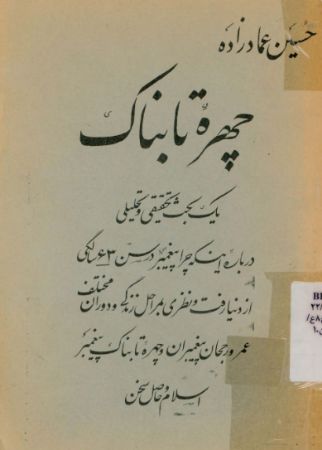 حسین عمادزاده
چهرهٔ تابناک
یک بحث تحقیقی و تحلیلی
درباره اینکه چرا پیغمبر در سن ۶۳ سالگی
از دنیا رفت و نظری بمراحل زندگی و دوران مختلف
عمر و رجحان پیغمبران و چهره تابناک پیغمبر
اسلام و حاصل سخن